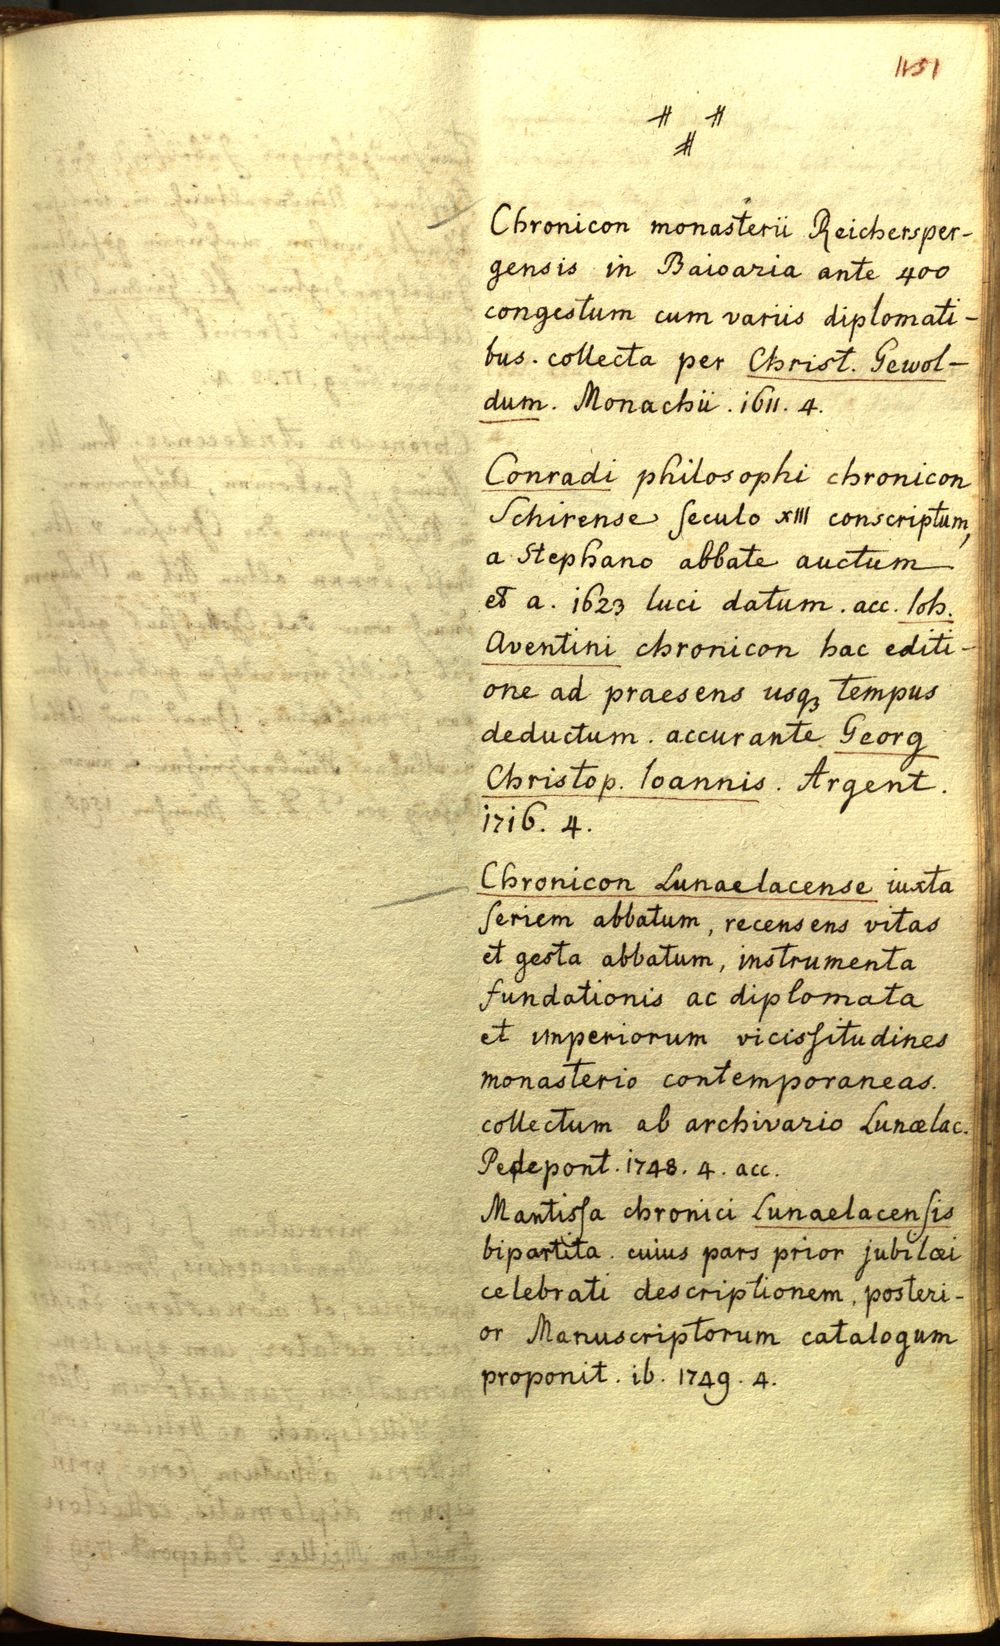 1151
# #
#
Chronicon monasterii Reichersper-
gensis in Baioaria ante 400
congestum cum variis diplomati-
bus. collecta per Christ. Gewol-
dum. Monachii. 1611. 4.
Conradi philosophi chronicon
Schirense seculo XIII conscriptum,
a Stephano abbate auctum
et a. 1623 luci datum. acc. Ioh.
Aventini chronicon hac editi-
one ad praesens usqꝫ tempus
deductum. accurante Georg
Christop. Ioannis. Argent.
1716. 4.
Chronicon Lunaelacense iuxta
ſeriem abbatum, recensens vitas
et gesta abbatum, instrumenta
fundationis ac diplomata
et imperiorum vicisſitudines
monasterio contemporaneas.
collectum ab archivario Lunælac.
Pedepont. 1748. 4. acc.
Mantisſa chronici Lunaelacenſis
bipartita. cuius pars prior jubilæi
celebrati descriptionem, posteri-
or Manuscriptorum catalogum
proponit. ib. 1749. 4.